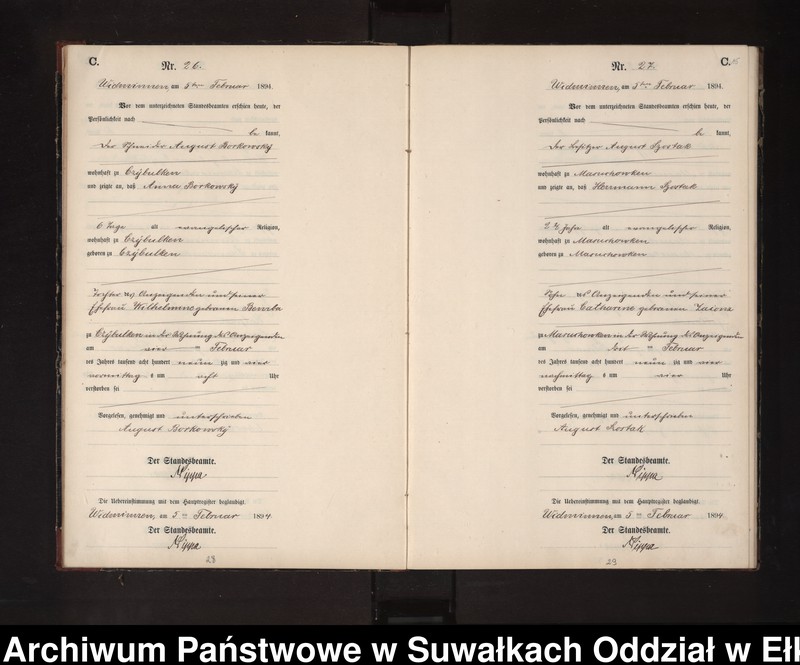 C.
Nr. 26.
Widminnen, am 5ten Februar 1894.
Vor dem unterzeichneten Standesbeamten erschien heute, der
Persönlichkeit nach
be kannt,
Der Schneider August Borkowsky
wohnhaft zu Czybulken
und zeigte an, daß Anna Borkowsky
6 Tage alt evangelischer Religion,
wohnhaft zu Czybulken
geboren zu Czybulken
Tochter des Anzeigenden und seiner
Ehefrau Wilhelmine geborenen
zu Czybulken in der Wohnung des Anzeigenden
am vier ten Februar
des Jahres tausend acht hundert neun zig und vier
vormittag s um acht Uhr
verstorben sei
Vorgelesen, genehmigt und unterschrieben
August Borkowsky
Der Standesbeamte.
Die Uebereinstimmung mit dem Hauptregister beglaubigt
Widminnen, am 5ten Februar 1894
Der Standesbeamte.
28
C.
Nr. 27.
Widminnen, am 5ten Februar 1894.
Vor dem unterzeichneten Standesbeamten erschien heute, der
Persönlichkeit nach
be kannt,
Der Besitzer August Szostak
wohnhaft zu Maruchowken
und zeigte an, daß Herrmann Szostak
alt evangelischer Religion,
wohnhaft zu Maruchowken
geboren zu Maruchowken
Sohn des Anzeigenden und seiner
Ehefrau Catharine geborenen
zu Maruchowken in der Wohnung des Anzeigenden
am ten Februar
des Jahres tausend acht hundert neun zig und vier
nachmittag s um vier Uhr
verstorben sei
Vorgelesen, genehmigt und unterschrieben
August
Der Standesbeamte.
Die Uebereinstimmung mit dem Hauptregister beglaubigt
Widminnen, am 5ten Februar 1894
Der Standesbeamte.
29
Archiwum Państwowe w Suwałkach Oddział w Eł